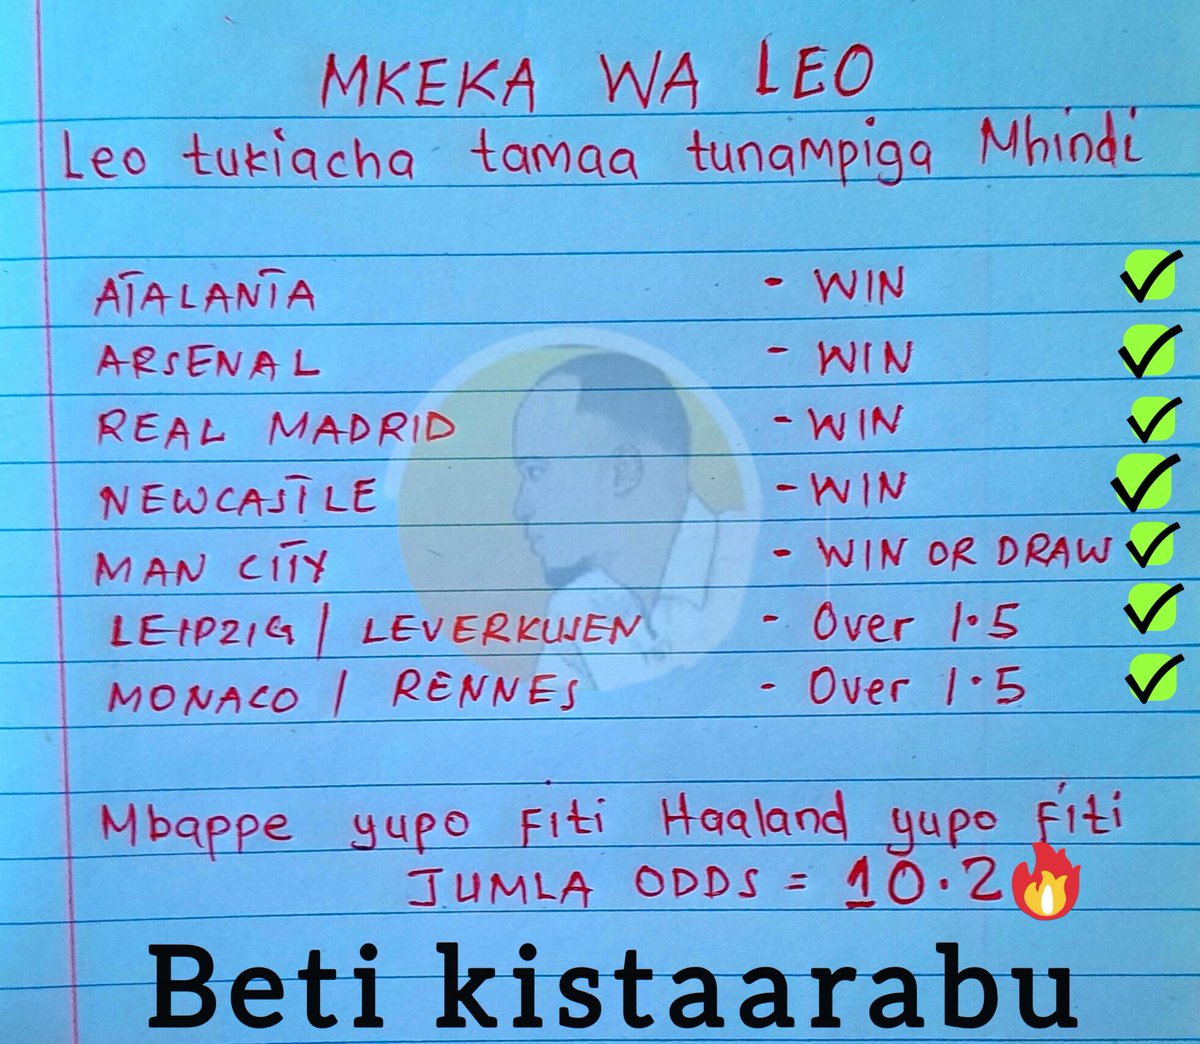 MKEKA WA LEO
Leo tukiacha tamaa tunampiga Mhindi
ATALANTA - WIN
ARSENAL - WIN
REAL MADRID - WIN
NEWCASTLE - WIN
MAN CITY - WIN OR DRAW
LEIPZIG / LEVERKUSEN - Over 1.5
MONACO / RENNES - Over 1.5
Mbappe yupo Fiti Haaland yupo Fiti
JUMLA ODDS = 10.2
Beti kistaarabu